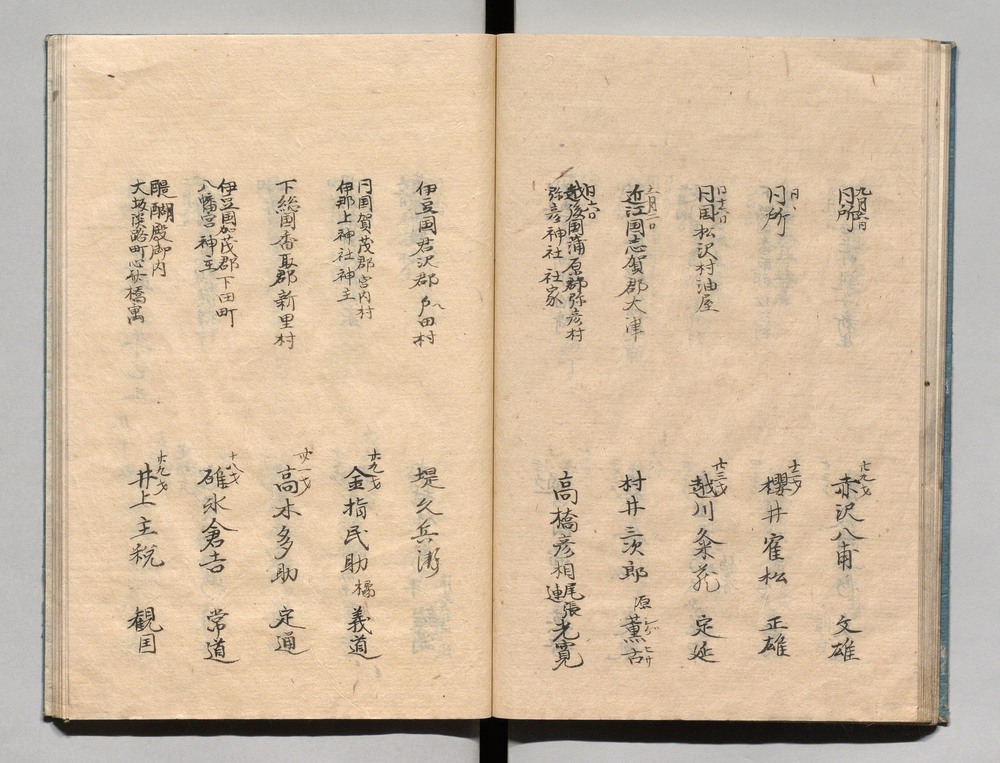 九月六日
同所
廿九才
赤沢八甫 文雄
同所
十二才
櫻井寉松 正雄
同十六日
同国松沢村油屋
廿三才
越川粂花 定延
十一月二日
近江国志賀郡大津
村井三次郎 源 薫古
同六日
越後国蒲原郡弥彦村
弥彦神社社家
高橋彦相 尾張連 光寛
伊豆国君沢郡戸田村
堤久兵衛
同国賀茂郡宮内村
伊那上神社神主
廿九才
金指民助 橘 義道
下総国香取郡新里村
廿一才
高木多助 定通
伊豆国加茂郡下田町
八幡宮神主
十八才
碓氷倉吉 常道
醍醐殿御内
大坂淡路町心斎橋寓
廿九才
井上主税 観国